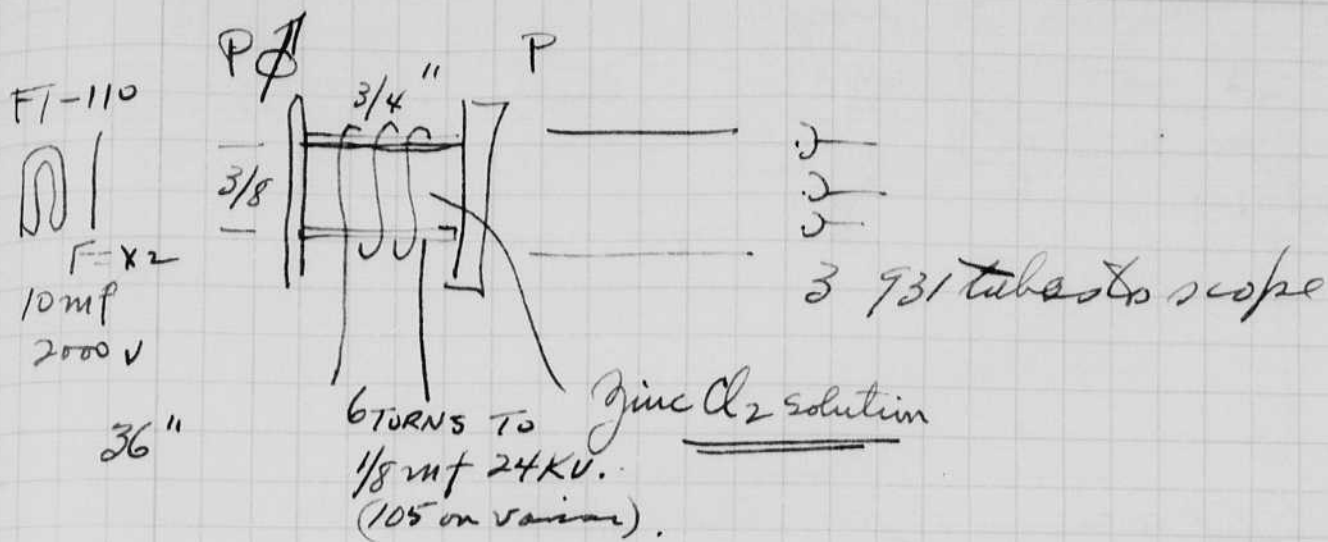 P P
FT-110
3/4"
3/8
F=X2
10mf
2000 V
36"
3 931 tubes to scope
6 TURNS TO
1/8 mf 24KV.
(105 on variac).
Zinc Cl2 solution